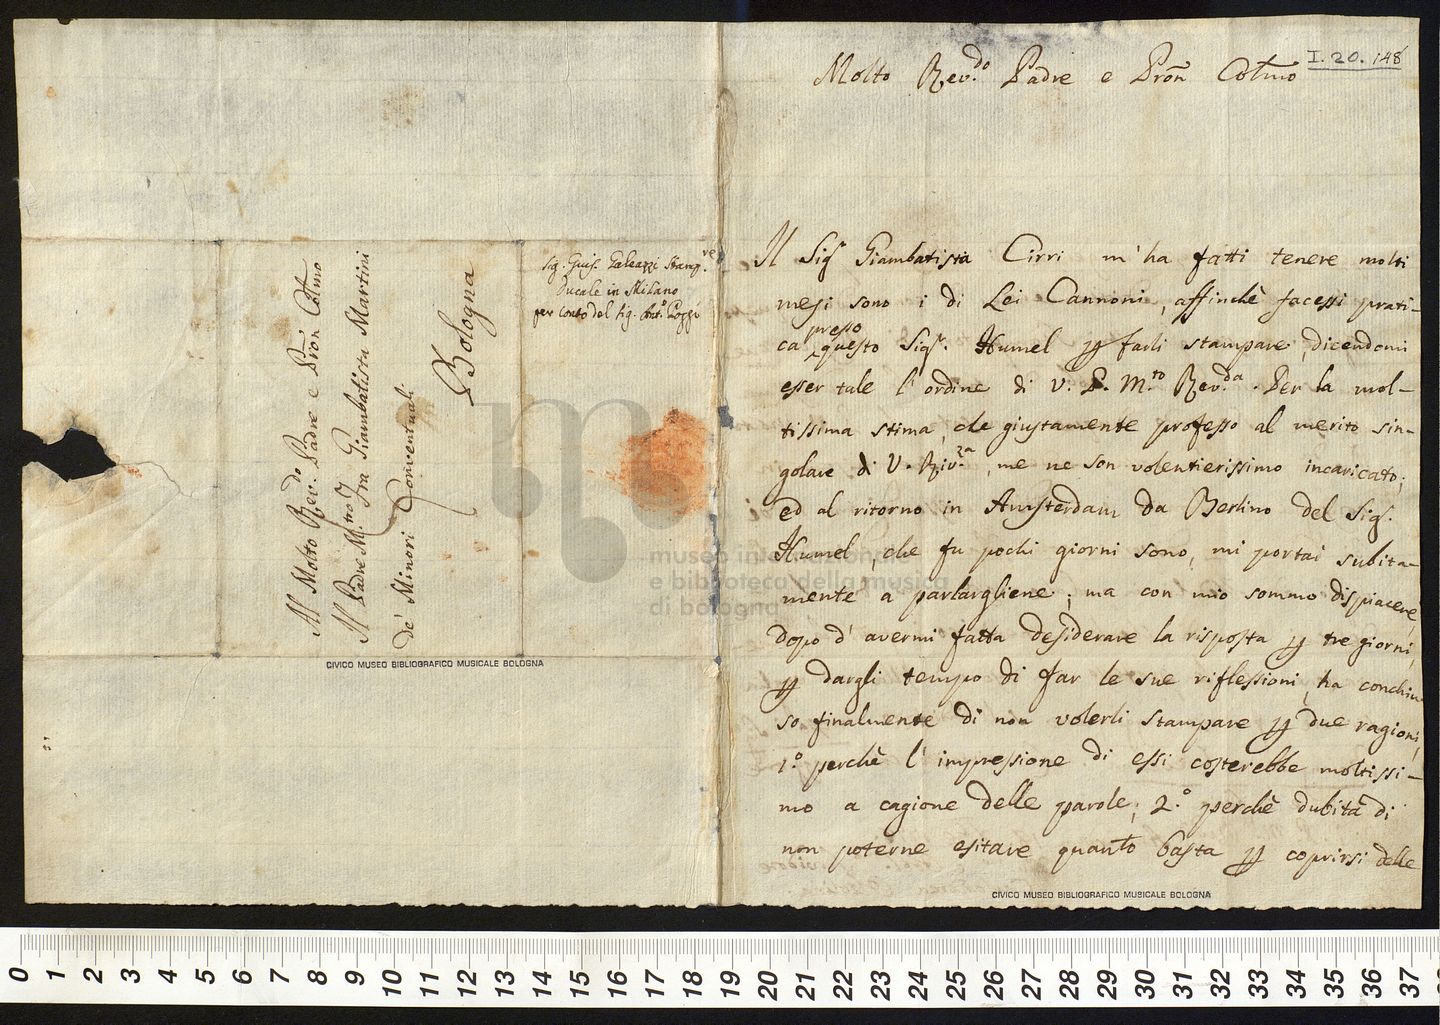 Al Molto Rev.do Padre e Pron Colmo
Al Padre M.tro Fra Giambatista Martini
de' Minori Conventuali
Bologna
Sig. Gius. Galeazzi Stamp.re
Ducale in Milano
per conto del Sig. Ant.o Poggi
CIVICO MUSEO BIBLIOGRAFICO MUSICALE BOLOGNA
I. 20. 148
Molto Rev.do Padre e Pron Colmo
Il Sigr Giambatista Cirri m'ha fatti tenere molti
mesi sono i di Lei Cannoni, affinchè facessi prati-
ca presso questo Sigr. Humel p farli stampare, dicendomi
esser tale l'ordine di V. P. M.to Rev.da. Per la mol-
tissima stima, che giustamente professo al merito sin-
golare di V. Riv.za, me ne son volentierissimo incaricato;
ed al ritorno in Amsterdam da Berlino del Sigr.
Humel, che fu pochi giorni sono, mi portai subita-
mente a parlargliene; ma con mio sommo dispiacere,
dopo d'avermi fatta desiderare la risposta p tre giorni,
p dargli tempo di far le sue riflessioni, ha conchiu-
so finalmente di non volerli stampare p due ragioni,
1.o perchè l'impressione di essi costerebbe moltissi-
mo a cagione delle parole; 2.o perchè dubita di
non poterne esitare quanto basta p coprirsi delle
CIVICO MUSEO BIBLIOGRAFICO MUSICALE BOLOGNA
museo internazionale
e biblioteca della musica
di bologna
0 1 2 3 4 5 6 7 8 9 10 11 12 13 14 15 16 17 18 19 20 21 22 23 24 25 26 27 28 29 30 31 32 33 34 35 36 37